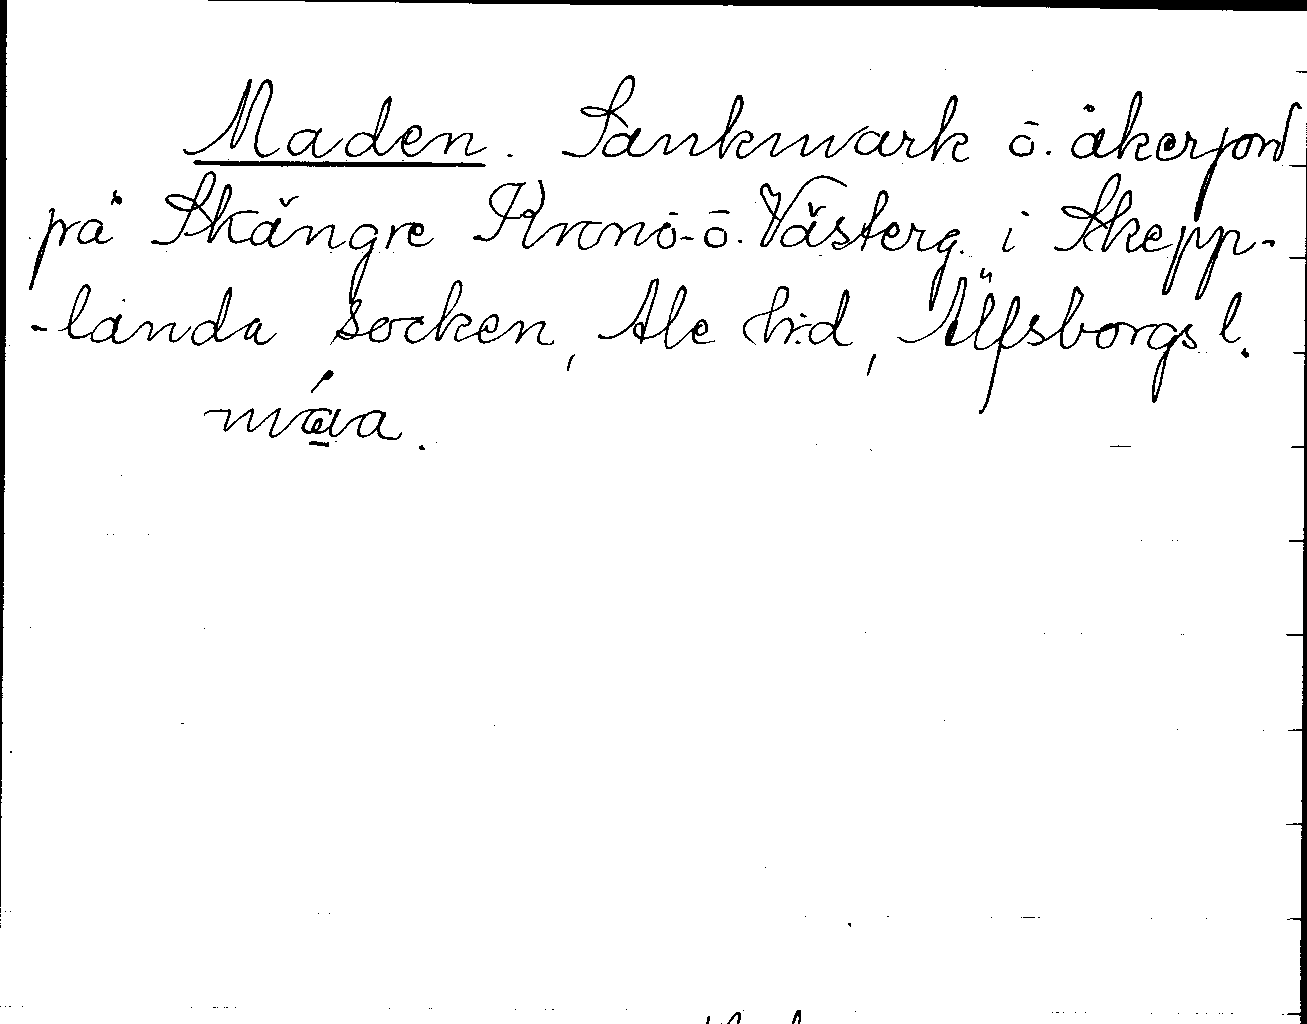 Maden. Sankmark ō. åkerjord
på Skängre Kronō-ō. Västerg. i Skepp-
-landa socken, Ale h:d, Älfsborgs l.